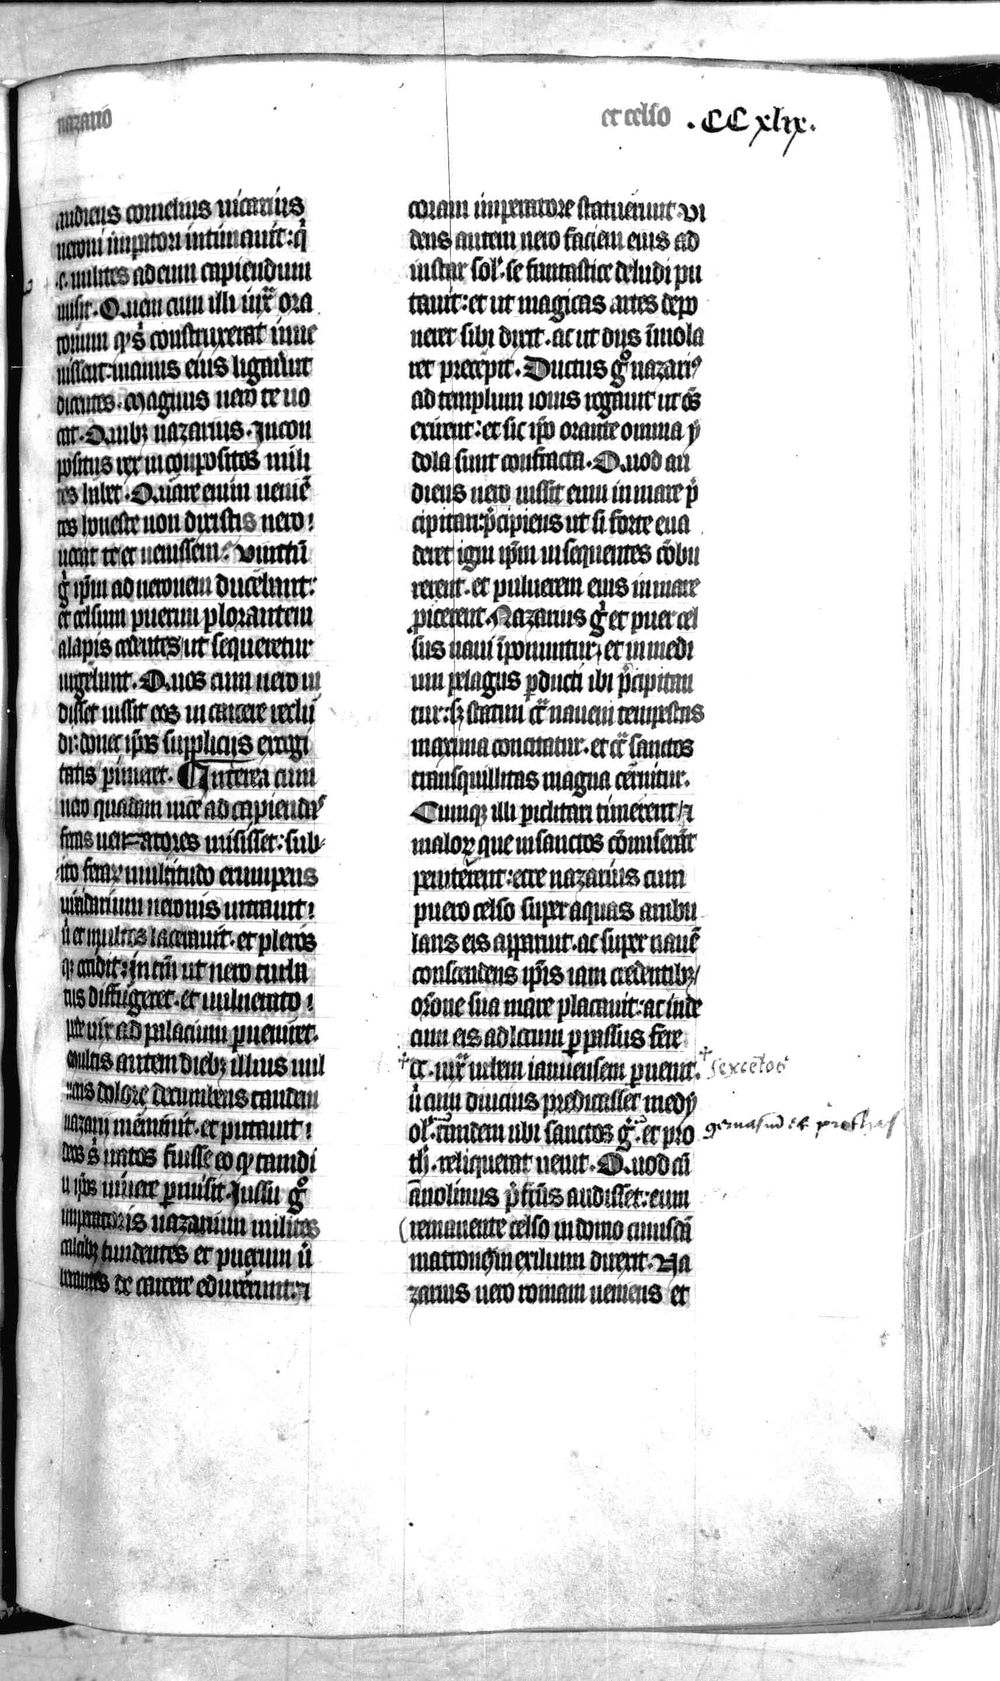 nazario
et celso .CCxlix.
audiens cornelius uicarius
neroni imp̃atori intimauit: q̇
.c. milites ad eum capiendum
misit. Quem cum illi iux̃ ora
torium qḋ construxerat inue
nissent: manus eius ligauer̃ut
dicentes. Magnus nero te uo
cat. Quibꝫ nazarius. Incon
positus rex inconpositos mili
tes habet. Quare enim uenie͂
tes honeste non dixistis nero
uocat te et uenissem. Uinctu͂
g̊ ip̃m ad neronem ducebant:
et celsum puerum plorantem
alapis cedentes ut sequeretur
urgebant. Quos cum nero ui
disset iussit eos in carcere reclu͂
di: donec ip̃os supplicijs exogi
tatis p̱imeret. Interea cum
nero quadam uice ad capienda͂s
feras uenatores misisset: sub
ito feraꝝ multitudo erumpens
uiridarium neronis intrauit:
u͂ et multos lacerauit. et pleros
qꝫ occidit: in tm̃ ut nero turba
tus diffugeret. et uulnerato
pede uix ad palacium p̱ueniret.
Multis autem diebꝫ illius uul
neris dolore decumbens tandem
nazarij meminit. et putauit
deos s̊ iratos fuisse eo ꝙ tamdi
u ip̃os uiuere p̱misit. Iussu g̊
imperatoris nazarium milites
calcibꝫ tundentes et puerum u͂
berantes de carcere eduxerunt: ⁊
coram imperatore statuerunt. Ui
dens autem nero faciem eius ad
instar sol̃. se fantastice deludi pu
tauit: et ut magicas artes depo
neret sibi dixit. ac ut dijs i͂mola
ret precepit. Ductus g̊ nazariꝰ
ad templum iouis rogauit ut o͂s
exirent: et sic ip̃o orante omnia y
dola sunt confracta. Quod au
diens nero iussit eum in mare p̃
cipitari: p̃cipiens ut si forte eua
deret igni ip̃m insequentes co͂bu
rerent. et puluerem eius in mare
ꝓicerent. Nazarius g̊ et puer cel
sus naui i͂ponuntur, et in medi
um pelagus ꝑducti ibi p̃cipitan
tur: sꝫ statim cir̃ nauem tempestas
maxima concitatur. et cir̃ sanctos
tranquillitas magna cernitur.
Cumqꝫ illi piclitari timerent ⁊
maloꝝ que in sanctos co͂miserant
peniterent: ecce nazarius cum
puero celso super aquas ambu
lans eis apparuit. ac super naue͂
conscendens ip̃is iam credentibꝫ
or̃one sua mare placauit: ac inde
cum eis ad locum p̱ passus fere
†cc. iux̃ urbem ianuensem p̱uenit. † Sexce͂tos
u͂ cum diucius predicasset medy
ol̃. tandem ubi sanctos g̃. et pro geruasiu͂ et prothas
th̃. reliquerat uenit. Quod cu͂
anolinus p̃fc̃us audisset: eum
remanente celso in domo cuiusda͂
matrone in exilium direxit. Na
zarius uero romam ueniens et